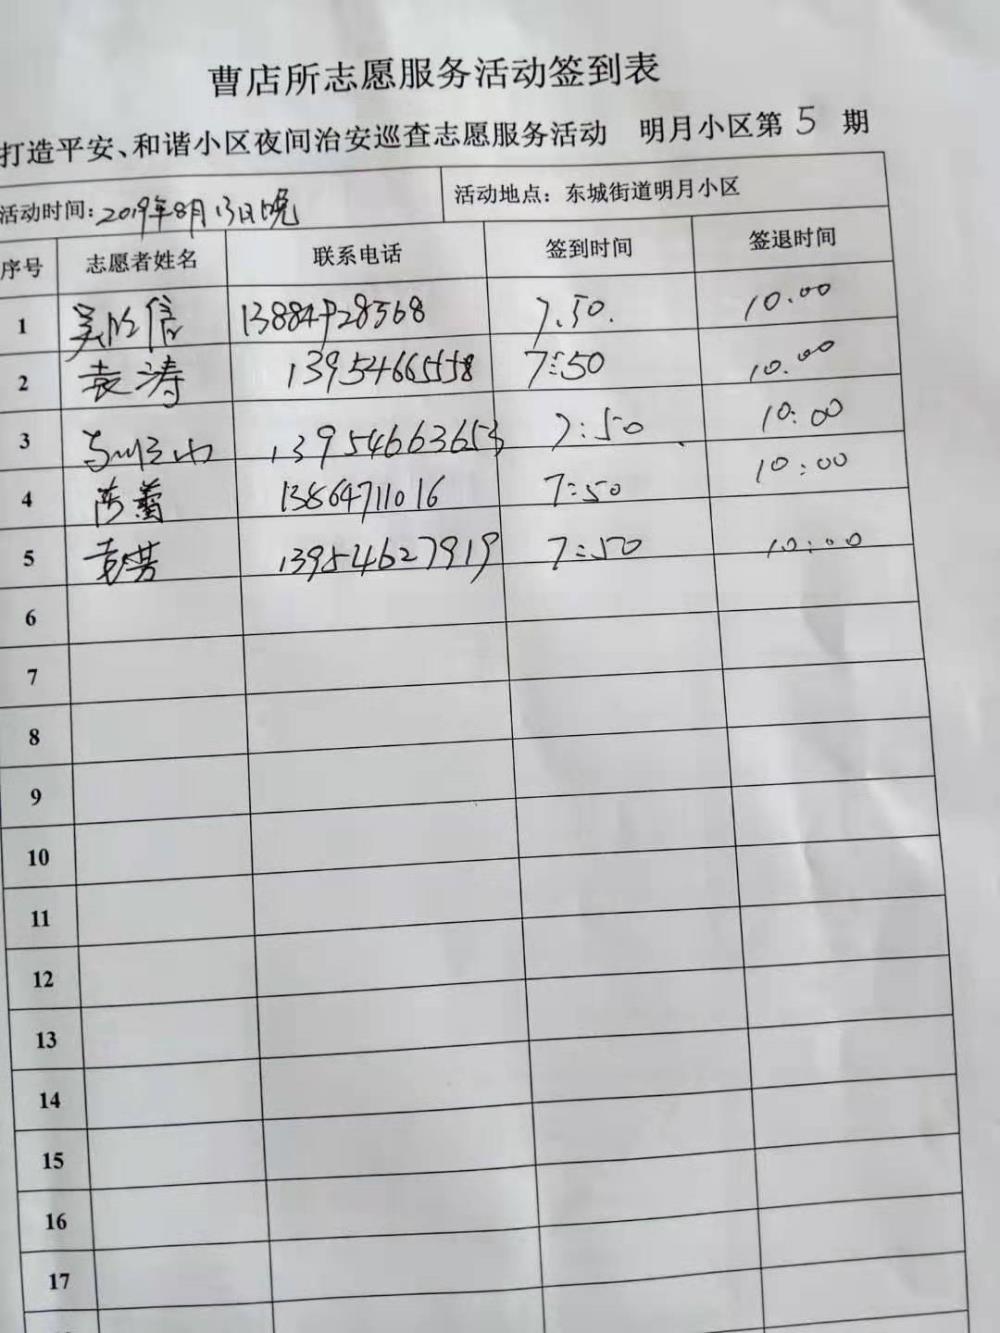 曹店所志愿服务活动签到表
打造平安、和谐小区夜间治安巡查志愿服务活动 明月小区第 5 期
活动时间: 2019年8月13日晚 活动地点: 东城街道明月小区
序号 志愿者姓名 联系电话 签到时间 签退时间
1 吴 信 13884928568 7.50. 10.00
2 袁涛 13954665558 7:50 10.00
3 13954663653 7:50 10:00
4 陈蕾 13864711016 7:50 10:00
5 袁芳 13954627919 7:50 10:00
6
7
8
9
10
11
12
13
14
15
16
17